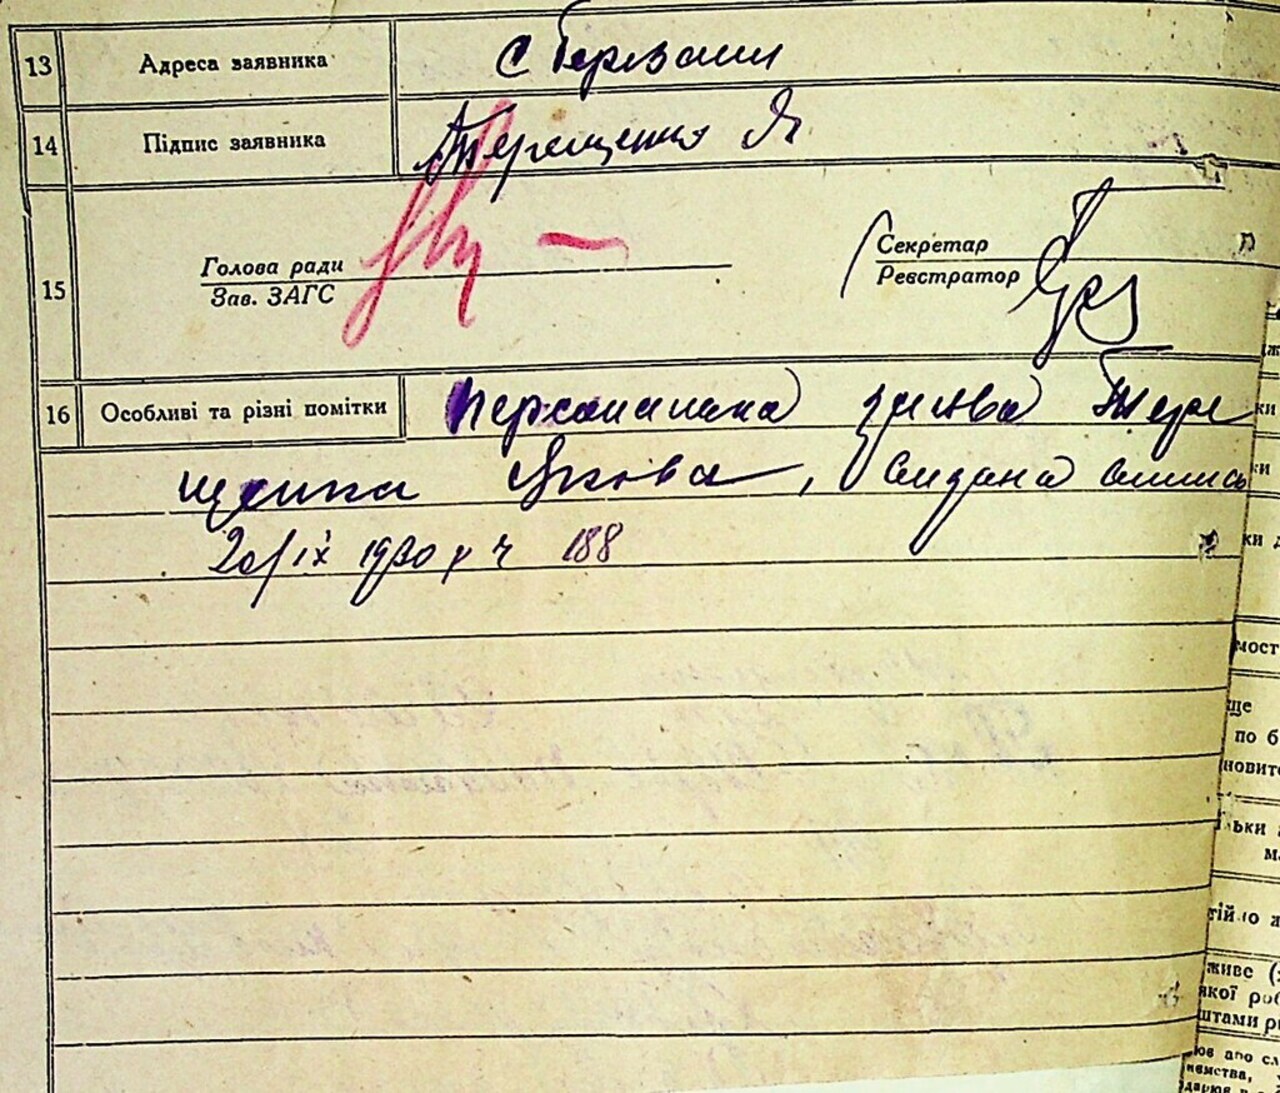 13 Адреса заявника с Березани
14 Підпис заявника Терещенко Я
15 Голова ради
Зав. ЗАГС
Секретар
Реєстратор
16 Особливі та різні помітки Персональна заява Тере
щенка Якова, видана випись
20/IX 1930 р ч 188
ки
ки
ки д
мост
ще
по б
новите
ьки
живе (
якої роб
штами
або сл